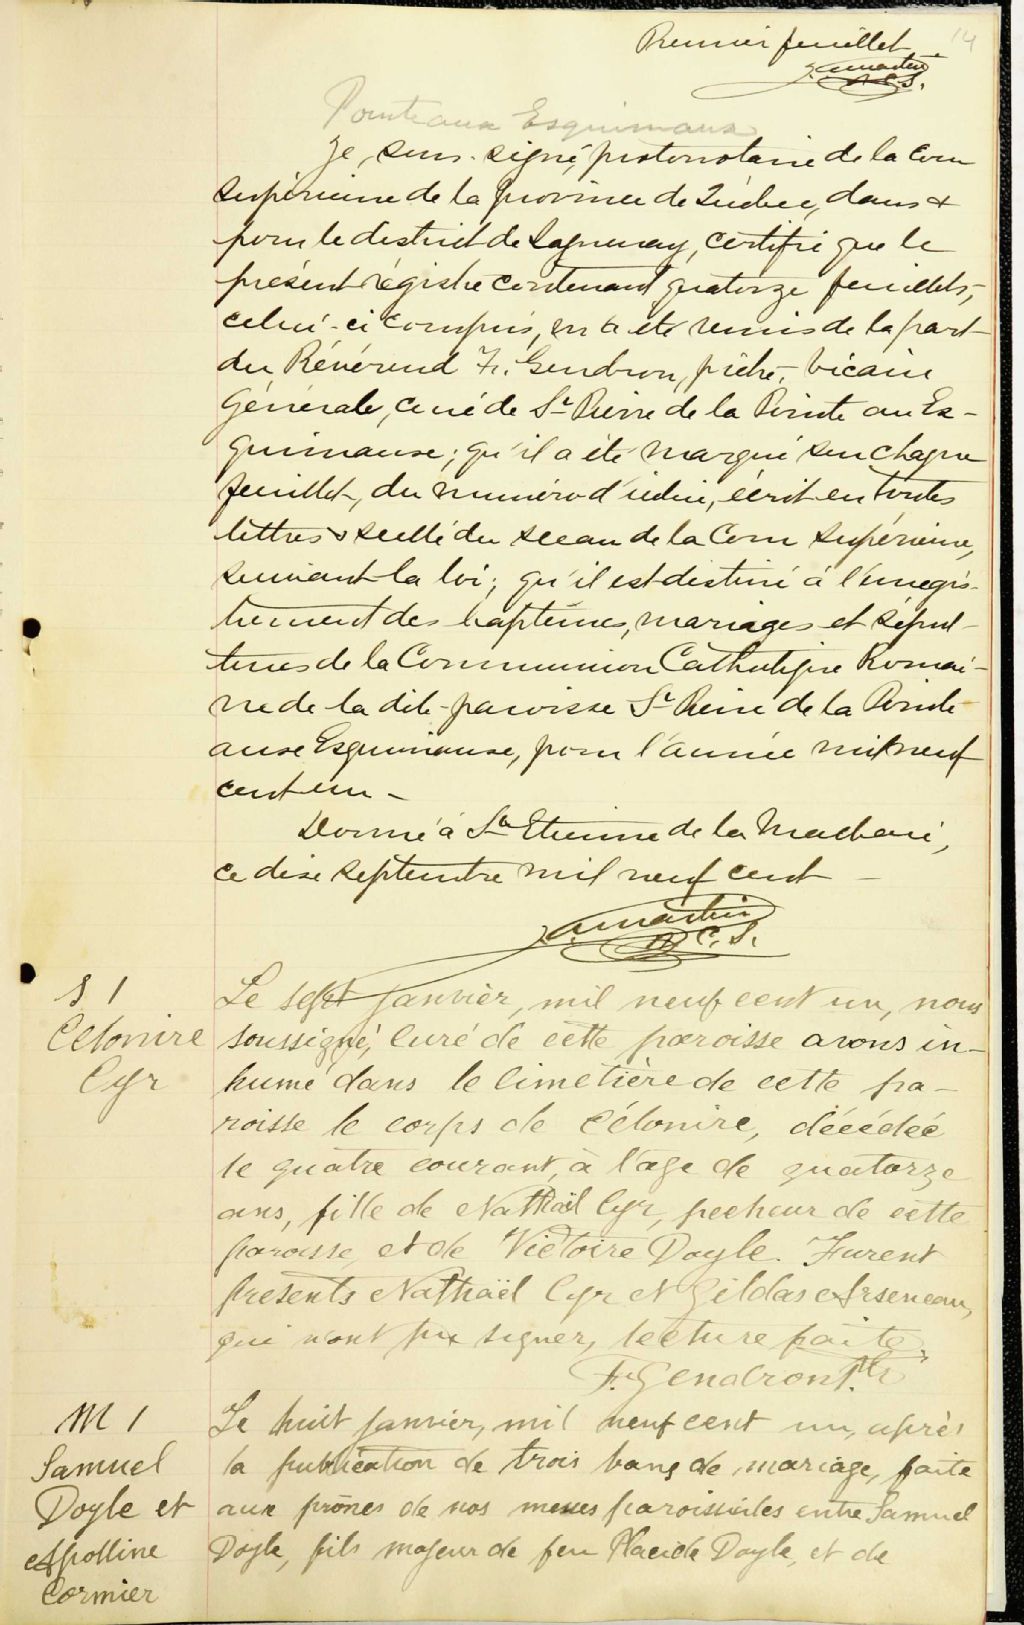 Premier feuillet
14
J. A. Martin
P.C.S.
Pointe aux Esquimaux
Je, sous-signé, protonotaire de la Cour
Supérieure de la province de Québec, dans &
pour le district de Saguenay, certifie que le
présent régistre contenant quatorze feuillets,
celui-ci compris, m'a été remis de la part
du Révérend F. Gendron, prêtre, Vicaire
Générale, curé de St Pierre de la Pointe au Es-
quimaux; qu'il a été marqué sur chaque
feuillet, du numéro d'ordre, écrit en toutes
lettres & scellé du sceau de la Cour Supérieure,
suivant la loi; qu'il est destiné à l'enregis-
trement des baptêmes, mariages et sépul-
tures de la Communion Catholique Romai-
ne de la dite paroisse St Pierre de la Pointe
aux Esquimaux, pour l'année mil neuf
cent un -
Donné à St Etienne de la Malbaie,
ce dix septembre mil neuf cent -
J. A. Martin
P.C.S.
S 1
Célonire
Cyr
Le sept janvier, mil neuf cent un, nous
soussigné, curé de cette paroisse avons in-
humé dans le cimetière de cette pa-
roisse le corps de Célonire, décédée
le quatre courant, à l'age de quatorze
ans, fille de Nathaël Cyr, pecheur de cette
paroisse, et de Victoire Doyle. Furent
presents Nathaël Cyr et Gildas Arseneau,
qui n'ont pu signer, lecture faite.
F. Gendron Ptr
M 1
Samuel
Doyle et
Apolline
Cormier
Le huit janvier, mil neuf cent un, après
la publication de trois bans de mariage, faite
aux prônes de nos messes paroissiales entre Samuel
Doyle, fils majeur de feu Placide Doyle, et de